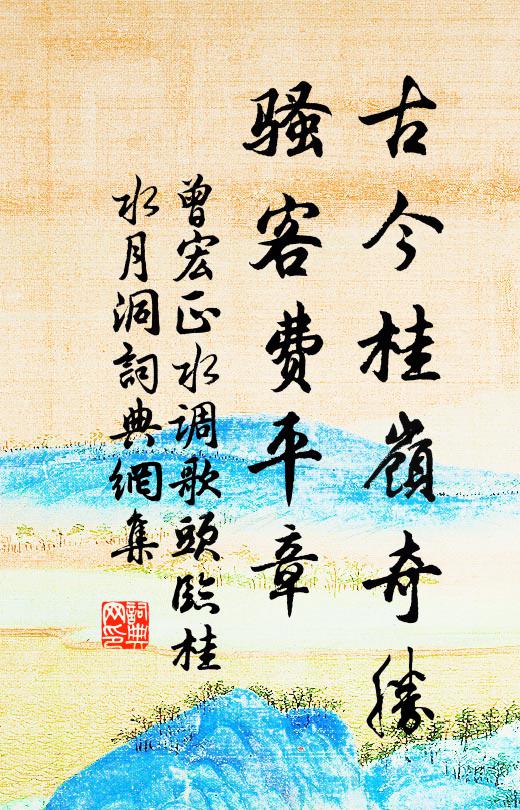 古今桂嶺奇勝
騷客費平章
曾宏正水调歌頭臨桂
水月洞詞典網集
詞典网印